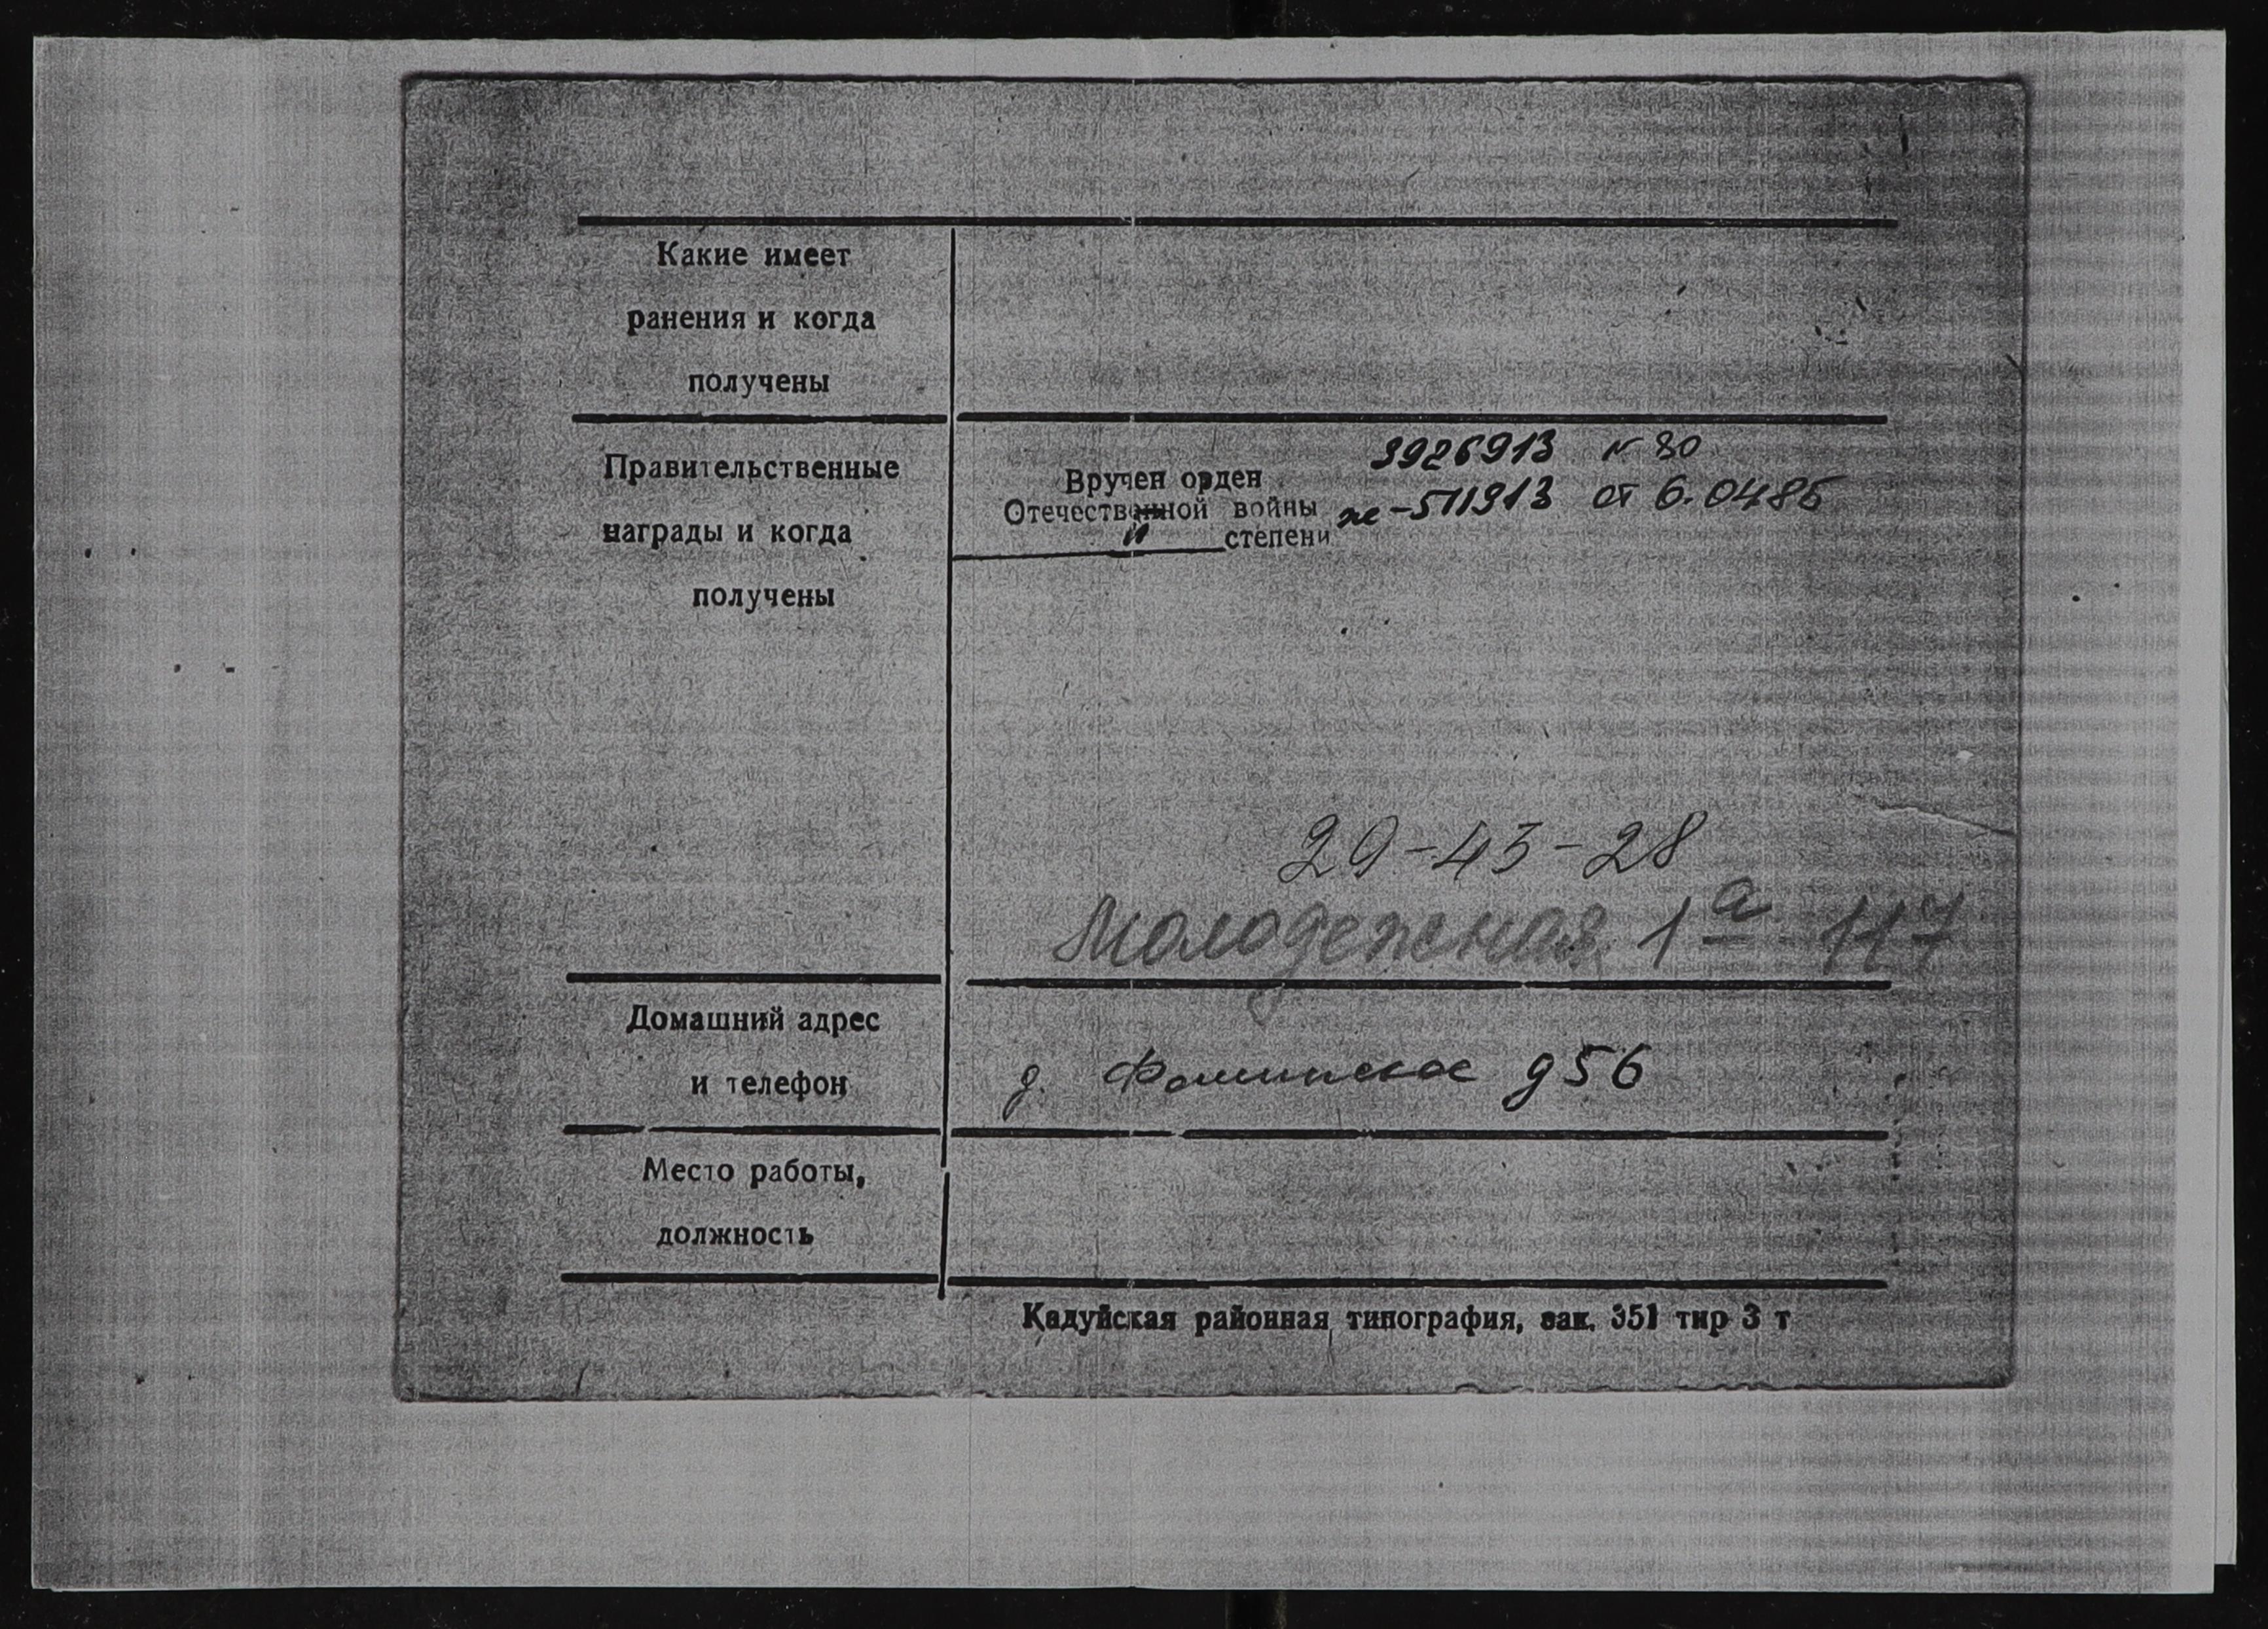 Какие имеет
ранения и когда
получены
Правительственные
награды и когда
получены
3926913 № 80
Вручен орден
Отечественной войны же-511913 от 6.0485
II степени
29-43-28
Молодежная 1а-117
Домашний адрес
и телефон
д. Фоминское д56
Место работы,
должность
Кадуйская районная типография, зак. 351 тир 3 т